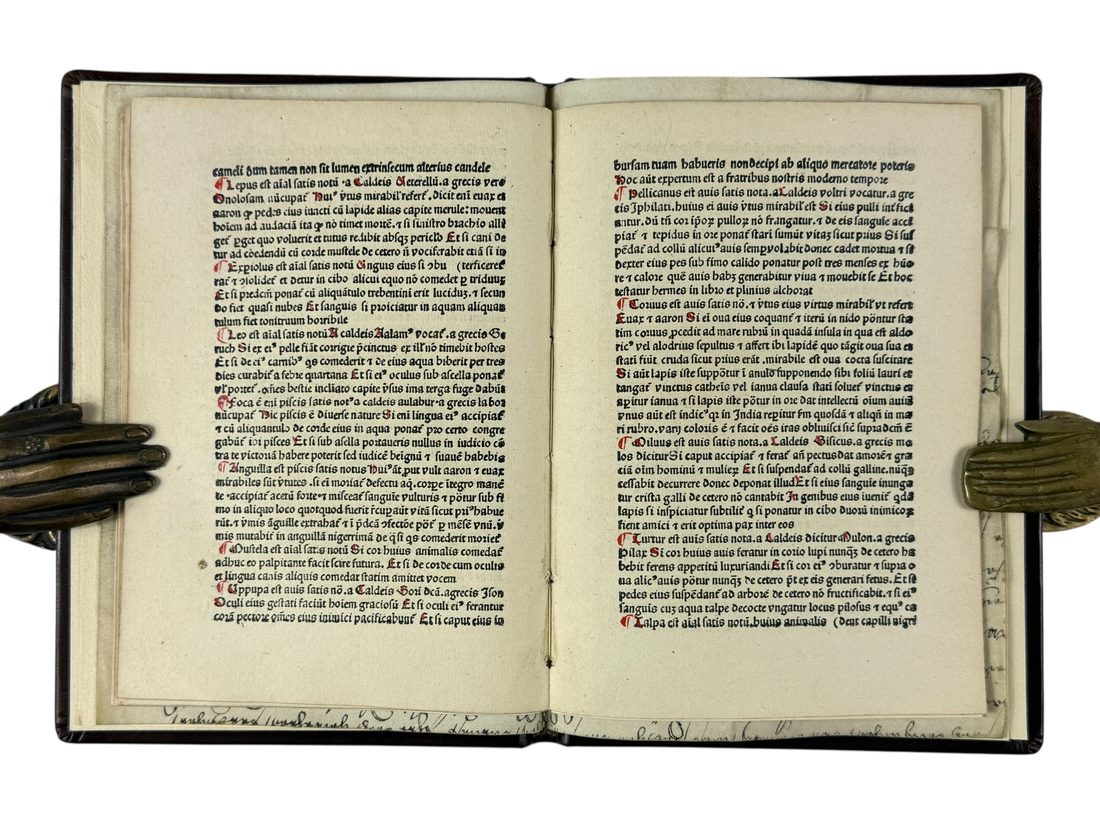 cameli dum tamen non sit lumen extrinsecum alterius candele
¶ Lepus est aīal satis notū ·a Caldeis Veterellū.a grecis vero
Onolosam nūcupat᷑ Huiꝰ ṽtus mirabil᷑ refert᷑. dicit eni euax et
aaron ꝙ pedes eius iuncti cū lapide alias capite merule: mouent
hoiem ad audaciā ita ꝙ nō timet mortē. ⁊ si sinistro brachio alli
get᷑ ꝑget quo voluerit et tutus redibit absqꝫ periclo Et si cani de
tur ad cōedendū cū corde mustele de cetero ñ vociferabit etiā si in
¶ Expiolus est aīal satis notū Unguis eius si ↄbu (terficeret᷑
rat᷑ ⁊ ↄsolidet᷑ et detur in cibo alicui equo nō comedet ꝑ triduuꝫ
Et si predcīm ponat᷑ cū aliquātulo trebentini erit luciduꝫ. ⁊ secun
do fiet quasi nubes Et sanguis si proiciatur in aquam aliquan
tulum fiet tonitruum horribile
¶ Leo est aīal satis notū A caldeis Aalamꝰ vocat᷑. a grecis Ge
ruch Si ex eiꝰ pelle fiāt corrigie ꝑcinctus ex ill᷑ nō timebit hostes
Et si de eiꝰ carnibꝰ qs comederit ⁊ de eius aqua biberit per tres
dies curabit᷑ a febre quartana Et si eiꝰ oculus sub ascella ponat᷑
vl᷑ portet᷑. oēs bestie incliato capite ṽsus ima terga fuge dabūt
¶ Foca ē eni piscis satis notꝰ a caldeis aulabur.a grecis labor
nūcupat᷑ Hic piscis ē diuerse nature Si eni lingua eiꝰ accipiat᷑
⁊ cū aliquantulo de corde eius in aqua ponat᷑ pro certo congre
gabūt᷑ ibi pisces Et si sub asella portaueris nullus in iudicio cō
tra te victoriā habere poterit sed iudicē benignū ⁊ suauē habebis
¶ Anguilla est piscis satis notus Huiꝰ aūt put vult aaron ⁊ euax
mirabiles sūt ṽtutes. si eni moriat᷑ defectu aq̄. corpe integro manē
te ·accipiat᷑ acetū forte ⁊ misceat᷑ sanguie vulturis ⁊ pōtur sub fi
mo in aliquo loco quotquod fuerit rēcuꝑāūt vitā sicut priꝰ habue
rūt. ⁊ ṽmis āguille extrahat᷑ ⁊ ī ꝑdcā ↄfectōe pōt᷑ ꝑ mēsē vnū. ṽ
mis mutabit᷑ in anguillā nigerrimā de q̄ si qs comederit moriet᷑
¶ Mustela est aīal satis notū Si cor huius animalis comedat᷑
adhuc eo palpitante facit scire futura. Et si de corde cum oculis
et lingua canis aliquis comedat statim amittet vocem
¶ Uppupa est auis satis nō.a Caldeis Bori dcā.a grecis Ison
Oculi eius gestati faciūt hoiem graciosū Et si oculi eiꝰ ferantur
corā pectore oēs eius inimici pacificabunt᷑ Et si caput eius in
bursam tuam habueris non decipi ab aliquo mercatore poteris
Hoc aūt expertum est a fratribus nostris moderno tempore
¶ Pellicanus est auis satis nota.a Caldeis voltri vocatur.a gre
cis Iphilati. huius ei auis ṽtus mirabil᷑ est Si eius pulli inficiā
antur. dū tñ cor ipōꝝ pulloꝝ nō frangatur. ⁊ de eis sanguie acci
piat᷑ ⁊ tepidus in ore ponat᷑ stati sumūt vitaꝫ sicut prius Si sus
pēdat᷑ ad collū alicuiꝰ auis semp volabit donec cadet mortua ⁊ si
dexter eius pes sub fimo calido ponatur post tres menses ex hūo
re ⁊ calore quē auis habꝫ generabitur viua ⁊ mouebit se Et hoc
testatur hermes in libro et plinius alchorat
¶ Coruus est auis satis nō. ⁊ ṽtus eius virtus mirabil᷑ vt refert
Euax ⁊ aaron Si ei oua eius coquant᷑ ⁊ iterū in nido pōntur sta
tim coruus ꝓcedit ad mare rubrū in quadā insula in qua est aldo
ricꝰ vel alodrius sepultus ⁊ affert ibi lapidē quo tāgit oua sua et
stati fiūt cruda sicut prius erāt. mirabile est oua cocta suscitare
Si aūt lapis iste suppōtur ī anulo supponendo sibi folii lauri et
tangat᷑ vinctus cathenis vel ianua clausa stati soluet᷑ vinctus et
aꝑitur ianua ⁊ si lapis iste pōtur in ore dat intellectū oium auiū
vnus aūt est indicꝰ qr in India reꝑitur fm quosdā ⁊ aliqñ in ma
ri rubro. varii coloris ē ⁊ facit oēs iras obliuisci sic̄ supradcm̄ ē
¶ Miluus est auis satis nota.a Caldeis Biscicus.a grecis me
los dicitur Si caput accipiat᷑ ⁊ ferat᷑ añ pectus dat amorē ⁊ gra
ciā oim hominū ⁊ mulieꝝ Et si suspendat᷑ ad collū galline. nūqꝫ
cessabit decurrere donec deponat illud Et si eius sanguie inunga
tur crista galli de cetero nō cantabit In genibus eius iuenit᷑ qdā
lapis si inspiciatur subtilit᷑ q̄ si ponatur in cibo duoꝝ inimicoꝝ
fient amici ⁊ erit optima pax inter eos
¶ Turtur est auis satis nota.a Caldeis dicitur Mulon.a grecis
Pilax Si cor huius auis feratur in corio lupi nunqꝫ de cetero ha
bebit ferens appetitū luxuriandi Et si cor eiꝰ ↄburatur ⁊ supra o
ua alicꝰ auis pōtur nunqꝫ de cetero pt ex eis generari fetus. Et si
pedes eius suspēdant᷑ ad arborē de cetero nō fructificabit. ⁊ si eiꝰ
sanguis cuꝫ aqua talpe decocte vngatur locus pilosus ⁊ equꝰ ca
¶ Talpa est aīal satis notū. huius animalis (dent capilli nigri